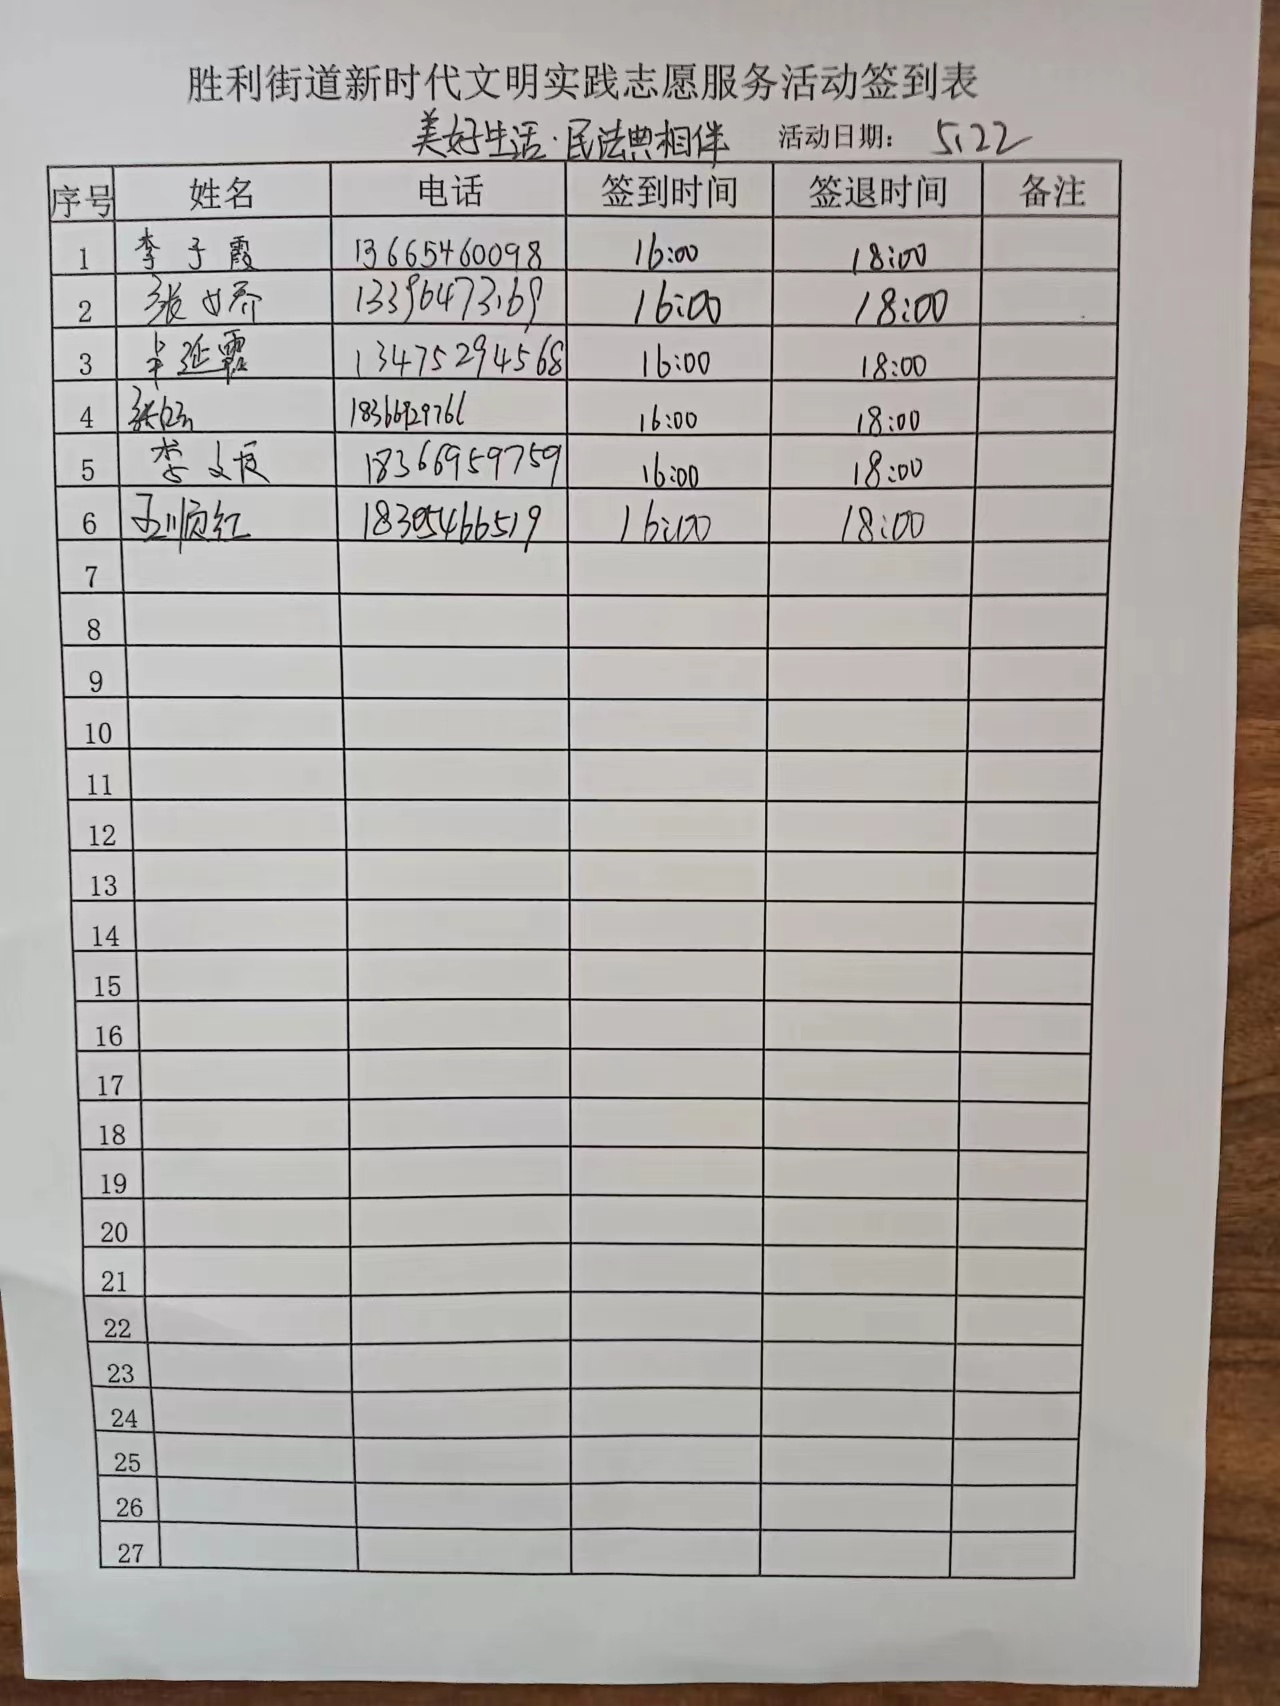 胜利街道新时代文明实践志愿服务活动签到表
美好生活·民法典相伴 活动日期： 5.22
序号 姓名 电话 签到时间 签退时间 备注
1 李子霞 13665460098 16:00 18:00
2 张 16:00 18:00
3 延霞 13475294568 16:00 18:00
4 张 18366929766 16:00 18:00
5 李文 18366959759 16:00 18:00
6 王顺红 18305466519 16:00 18:00
7
8
9
10
11
12
13
14
15
16
17
18
19
20
21
22
23
24
25
26
27